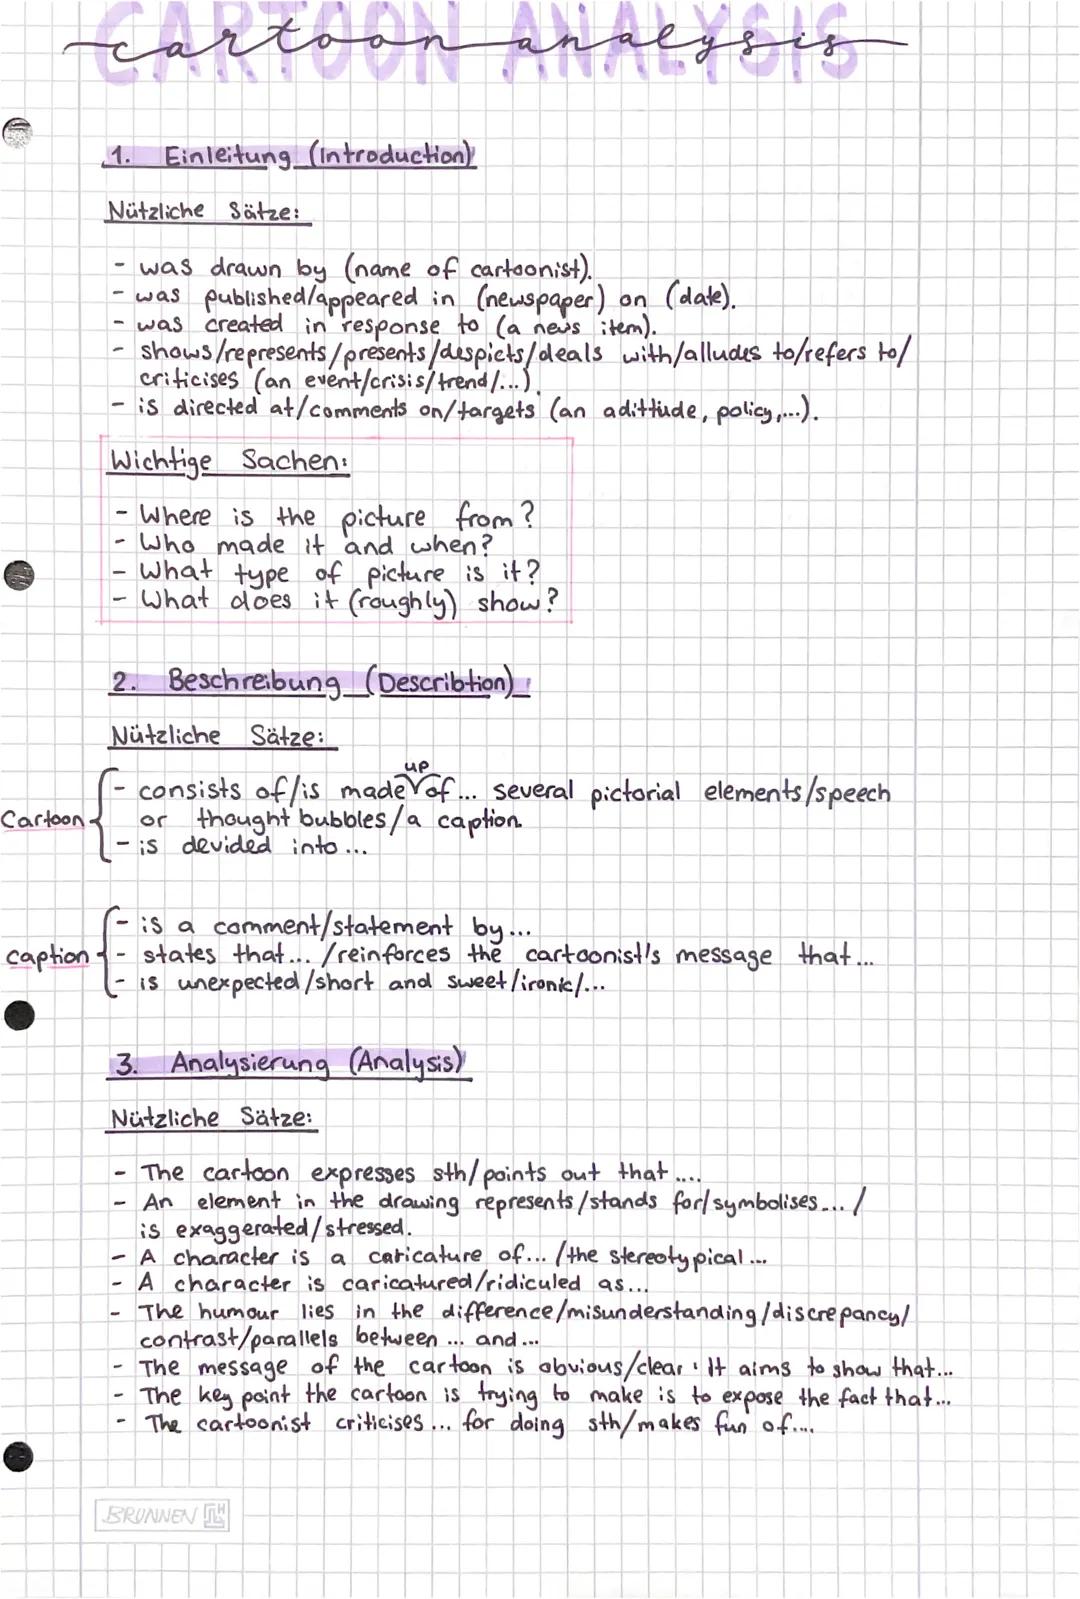 CARTOON ANALYSIS
cartoon analysis
1. Einleitung (Introduction)
Nützliche Sätze:
- was drawn by (name of cartoonist).
- was published/appeared in (newspaper) on (date).
- was created in response to (a news item).
- shows/represents/presents/despicts/deals with/alludes to/refers to/
criticises (an event/crisis/trend/...).
- is directed at/comments on/targets (an adittude, policy,...).
Wichtige Sachen:
- Where is the picture from?
- Who made it and when?
- What type of picture is it?
- What does it (roughly) show?
2. Beschreibung (Describtion)
Nützliche Sätze:
up
- consists of/is made of... several pictorial elements/speech
Cartoon
or thought bubbles/a caption
- is devided into...
- is a comment/statement by...
caption
- states that... /reinforces the cartoonist's message that...
- is unexpected/short and sweet/ironic/...
3. Analysierung (Analysis)
Nützliche Sätze:
- The cartoon expresses sth/points out that....
- An element in the drawing represents/stands for/symbolises... /
is exaggerated/stressed.
- A character is a caricature of... /the stereotypical...
- A character is caricatured/ridiculed as...
- The humour lies in the difference/misunderstanding/discrepancy/
contrast/parallels between ... and...
- The message of the cartoon is obvious/clear: It aims to show that...
- The key point the cartoon is trying to make is to expose the fact that...
- The cartoonist criticises... for doing sth/makes fun of....
BRUNNEN